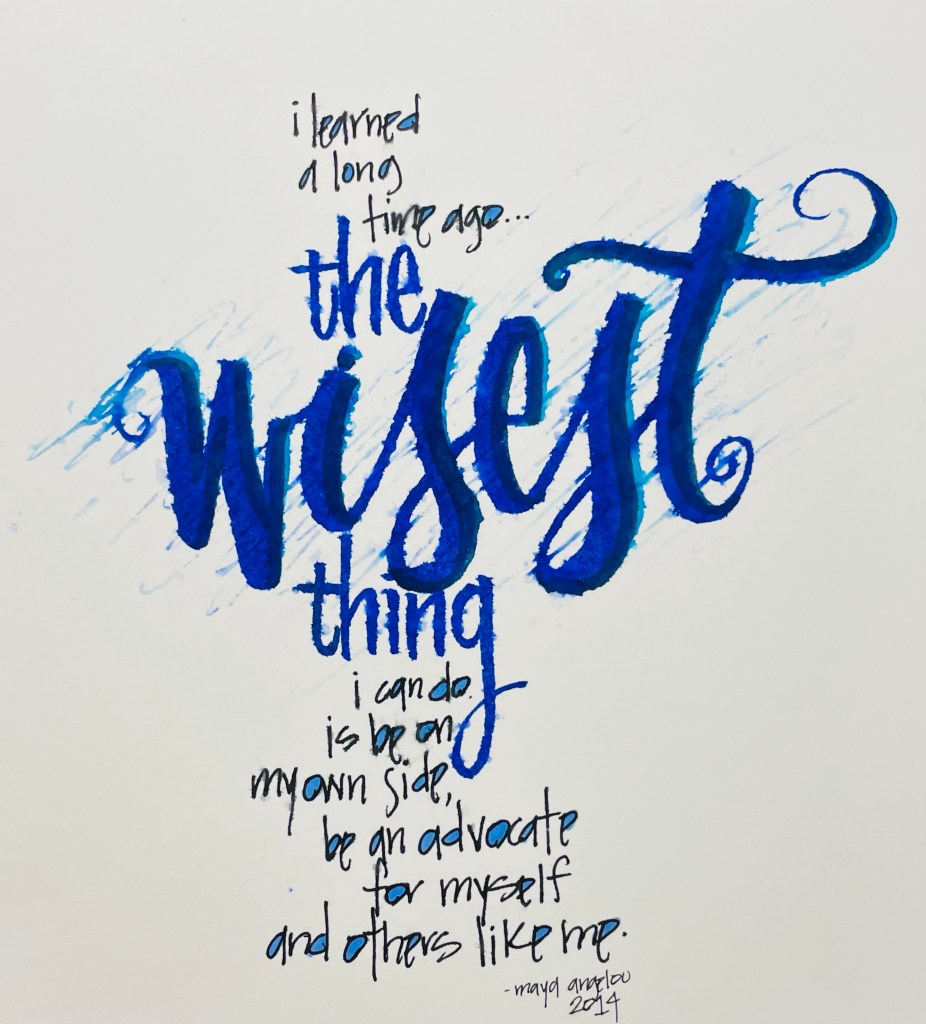 i learned
a long
time ago...
the
wisest
thing
i can do
is be on
my own side,
be an advocate
for myself
and others like me.
-maya angelou
2014